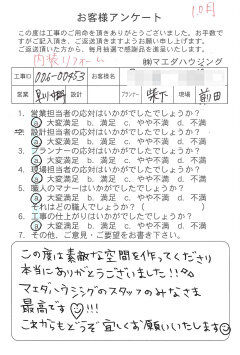 10月
お客様アンケート
この度は工事のご用命を頂きありがとうございました。お手数で
すがご記入頂き、ご返送頂きますようお願い申し上げます。
ご返送頂いた方から、毎月抽選で感謝品を進呈いたします。
内装リフォーム
㈱マエダハウジング
工事ID 006-00453 お客様名
営業 設計 プランナー 柴下 現場 前田
1. 営業担当者の応対はいかがでしたでしょうか?
a 大変満足 b. 満足 c. やや不満 d. 不満
2. 設計担当者の応対はいかがでしたでしょうか?
a. 大変満足 b. 満足 c. やや不満 d. 不満
3. プランナーの応対はいかがでしたでしょうか?
a 大変満足 b. 満足 c. やや不満 d. 不満
4. 現場担当者の応対はいかがでしたでしょうか?
a 大変満足 b. 満足 c. やや不満 d. 不満
5. 職人のマナーはいかがでしたでしょうか?
a 大変満足 b. 満足 c. やや不満 d. 不満
それはどの職人でしょうか?( )
6. 工事の仕上がりはいかがでしたでしょうか?
a 大変満足 b. 満足 c. やや不満 d. 不満
7. その他、ご意見・ご要望をお書き下さい。
この度は素敵な空間を作ってくださり
本当にありがとうございました!!
マエダハウジングのスタッフのみなさま
最高です!!!
これからもどうぞ宜しくお願いいたします